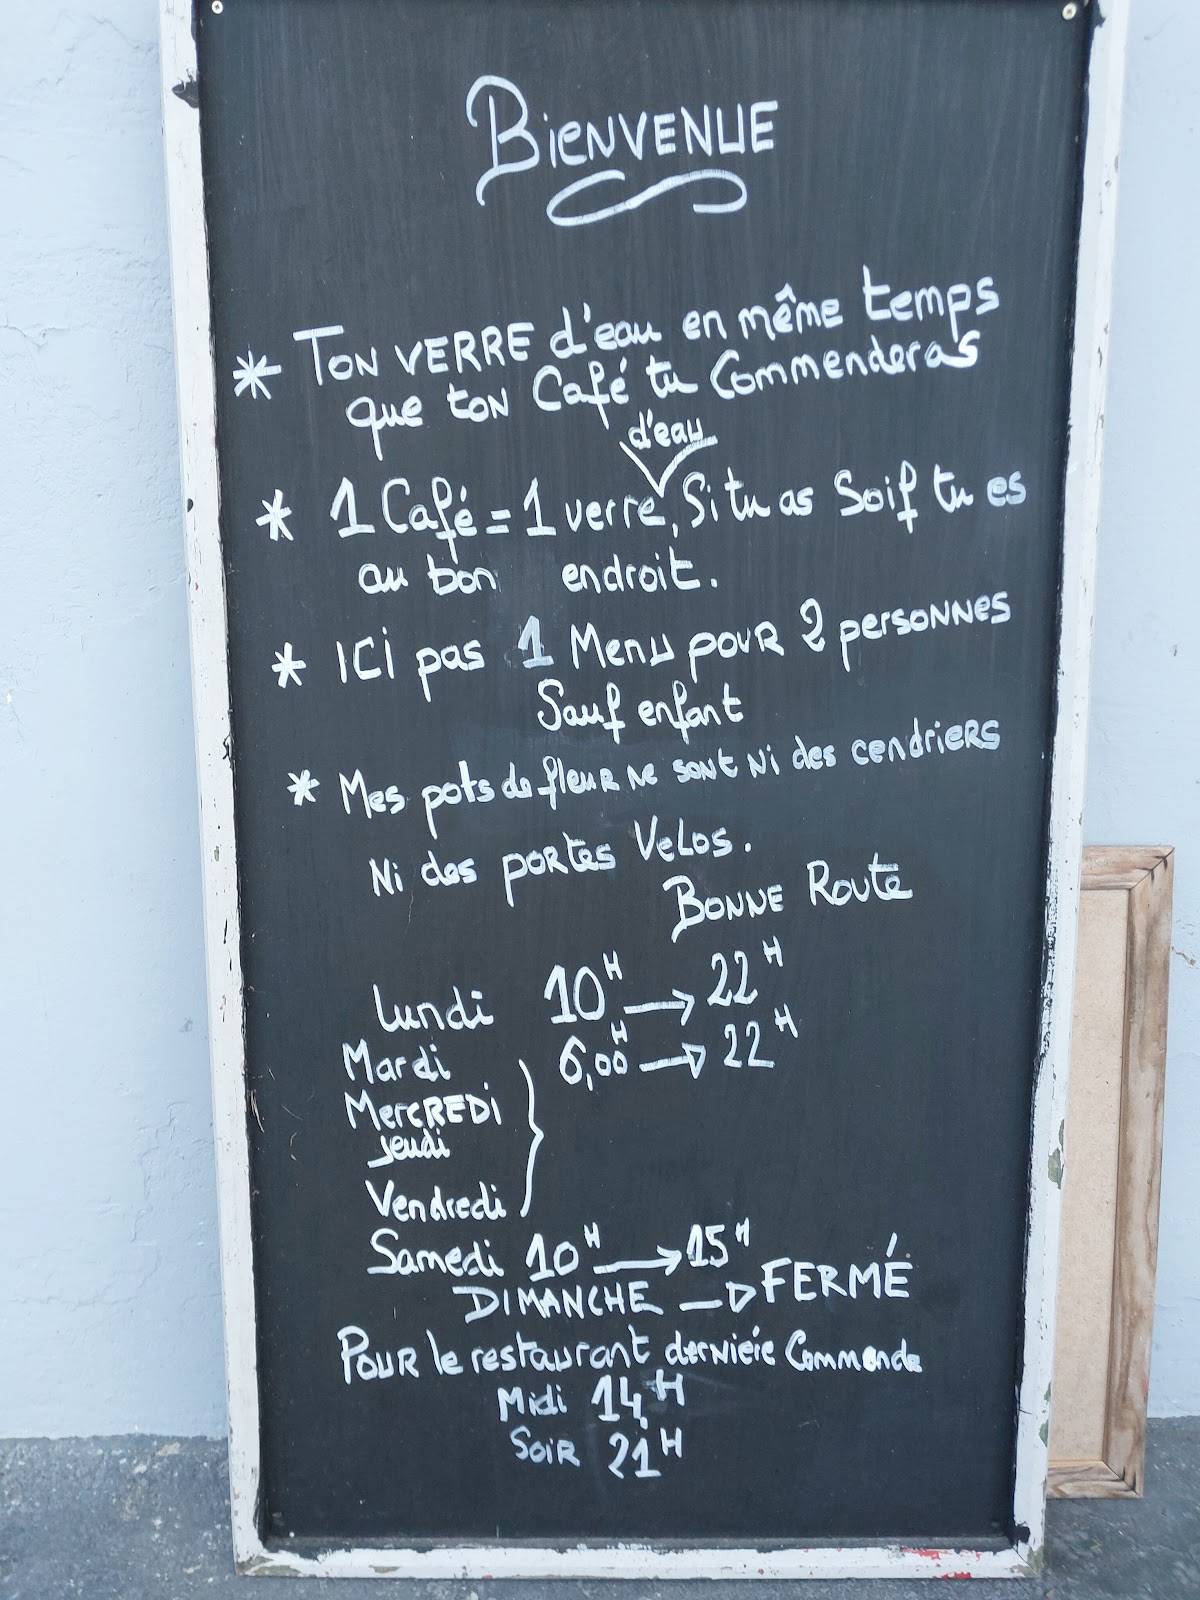 BIENVENUE
* TON VERRE d'eau en même temps
que ton Café tu Commenderas
d'eau
* 1 Café = 1 verre, Si tu as Soif tu es
au bon endroit.
* ICI pas 1 Menu pour 2 personnes
Sauf enfant
* Mes pots de fleur ne sont ni des cendriers
Ni des portes Velos.
BONNE Route
Lundi 10H → 22H
Mardi 6,00H → 22H
MercREDi
jeudi
Vendredi
Samedi 10H → 15H
DIMANCHE → FERMÉ
Pour le restaurant derniére Commande
Midi 14H
Soir 21H